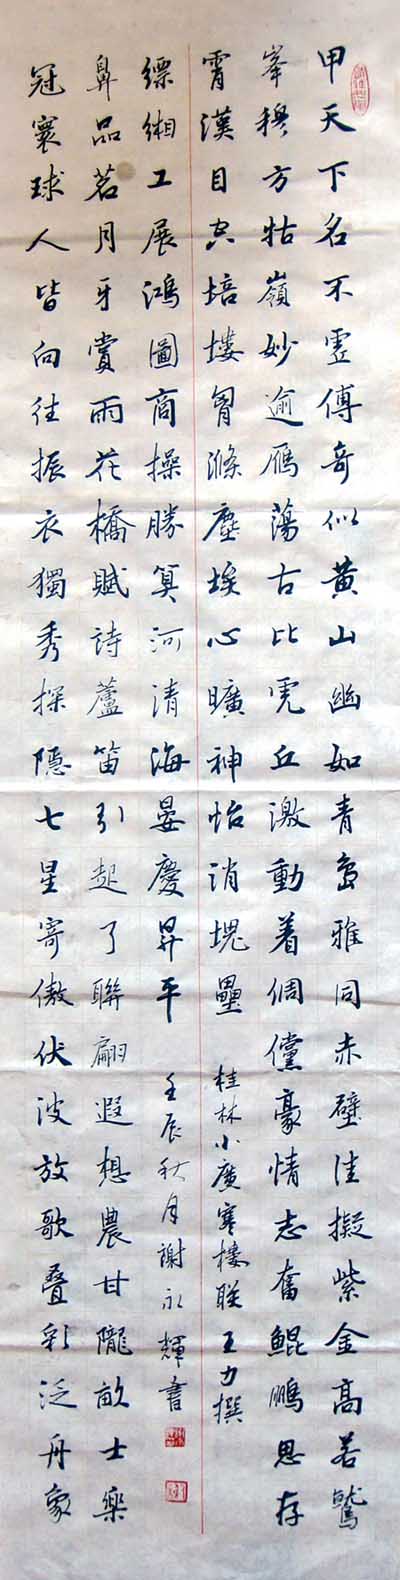 甲天下名不虛傳奇似黃山幽如青島雅同赤壁佳擬紫金高若鷲
峯穆方牯嶺妙逾雁蕩古比虎丘激動着倜儻豪情志奮鯤鵬思存
霄漢目空培塿胷滌塵埃心曠神怡消塊壘 桂林小廣寒樓联 王力撰
冠寰球人皆向往振衣獨秀探隱七星寄傲伏波放歌叠彩泛舟象
鼻品茗月牙賞雨花橋賦詩蘆笛引起了聯翩遐想農甘隴畝士樂
縹緗工展鴻圖商操勝算河清海晏慶昇平 壬辰秋月謝永輝書